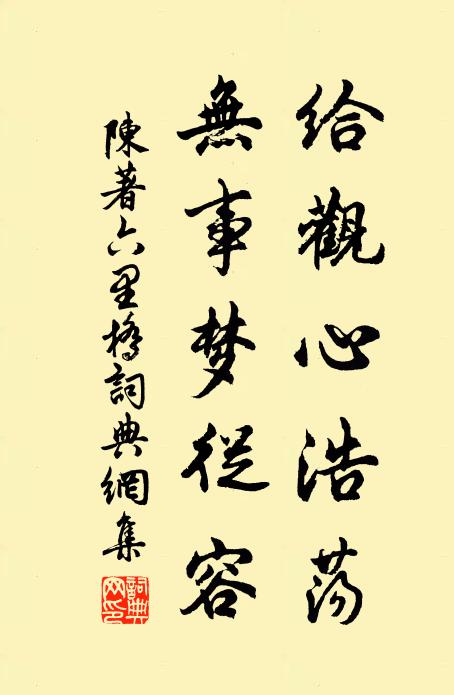 給觀心浩荡
無事梦從容
陳著六里橋詞典網集
詞典网印